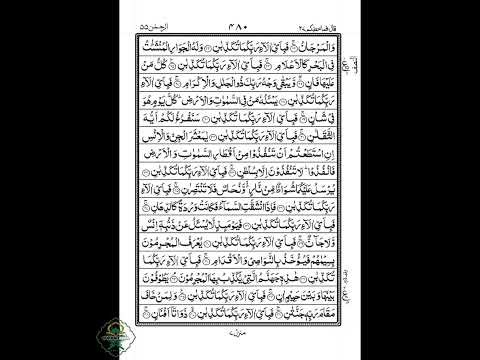 قال فما خطبكم ٢٧
٤٨٠
الرحمٰن ٥٥
وَالْمَرْجَانُ ۚ فَبِاَىِّ اٰلَآءِ رَبِّكُمَا تُكَذِّبٰنِ وَلَهُ الْجَوَارِ الْمُنْشَئٰتُ
فِى الْبَحْرِ كَالْاَعْلَامِ ۚ فَبِاَىِّ اٰلَآءِ رَبِّكُمَا تُكَذِّبٰنِ كُلُّ مَنْ
عَلَيْهَا فَانٍ ۚ وَّيَبْقٰى وَجْهُ رَبِّكَ ذُو الْجَلٰلِ وَالْاِكْرَامِ ۚ فَبِاَىِّ اٰلَآءِ
رَبِّكُمَا تُكَذِّبٰنِ يَسْئَلُهٗ مَنْ فِى السَّمٰوٰتِ وَالْاَرْضِ ؕ كُلَّ يَوْمٍ هُوَ
فِىْ شَاْنٍ ۚ فَبِاَىِّ اٰلَآءِ رَبِّكُمَا تُكَذِّبٰنِ سَنَفْرُغُ لَكُمْ اَيُّهَ
الثَّقَلٰنِ ۚ فَبِاَىِّ اٰلَآءِ رَبِّكُمَا تُكَذِّبٰنِ يٰمَعْشَرَ الْجِنِّ وَالْاِنْسِ
اِنِ اسْتَطَعْتُمْ اَنْ تَنْفُذُوْا مِنْ اَقْطَارِ السَّمٰوٰتِ وَالْاَرْضِ
فَانْفُذُوْا ؕ لَا تَنْفُذُوْنَ اِلَّا بِسُلْطٰنٍ ۚ فَبِاَىِّ اٰلَآءِ رَبِّكُمَا تُكَذِّبٰنِ
يُرْسَلُ عَلَيْكُمَا شُوَاظٌ مِّنْ نَّارٍ ۙ وَّنُحَاسٌ فَلَا تَنْتَصِرٰنِ ۚ فَبِاَىِّ اٰلَآءِ
رَبِّكُمَا تُكَذِّبٰنِ فَاِذَا انْشَقَّتِ السَّمَآءُ فَكَانَتْ وَرْدَةً كَالدِّهَانِ ۚ
فَبِاَىِّ اٰلَآءِ رَبِّكُمَا تُكَذِّبٰنِ فَيَوْمَئِذٍ لَّا يُسْئَلُ عَنْ ذَنْۢبِهٖۤ اِنْسٌ
وَّلَا جَآنٌّ ۚ فَبِاَىِّ اٰلَآءِ رَبِّكُمَا تُكَذِّبٰنِ يُعْرَفُ الْمُجْرِمُوْنَ
بِسِيْمٰهُمْ فَيُؤْخَذُ بِالنَّوَاصِىْ وَالْاَقْدَامِ ۚ فَبِاَىِّ اٰلَآءِ رَبِّكُمَا
تُكَذِّبٰنِ هٰذِهٖ جَهَنَّمُ الَّتِىْ يُكَذِّبُ بِهَا الْمُجْرِمُوْنَ ۘ يَطُوْفُوْنَ
بَيْنَهَا وَبَيْنَ حَمِيْمٍ اٰنٍ ۚ فَبِاَىِّ اٰلَآءِ رَبِّكُمَا تُكَذِّبٰنِ وَلِمَنْ خَافَ
مَقَامَ رَبِّهٖ جَنَّتٰنِ ۚ فَبِاَىِّ اٰلَآءِ رَبِّكُمَا تُكَذِّبٰنِ ذَوَاتَاۤ اَفْنَانٍ ۚ
منزل ٧